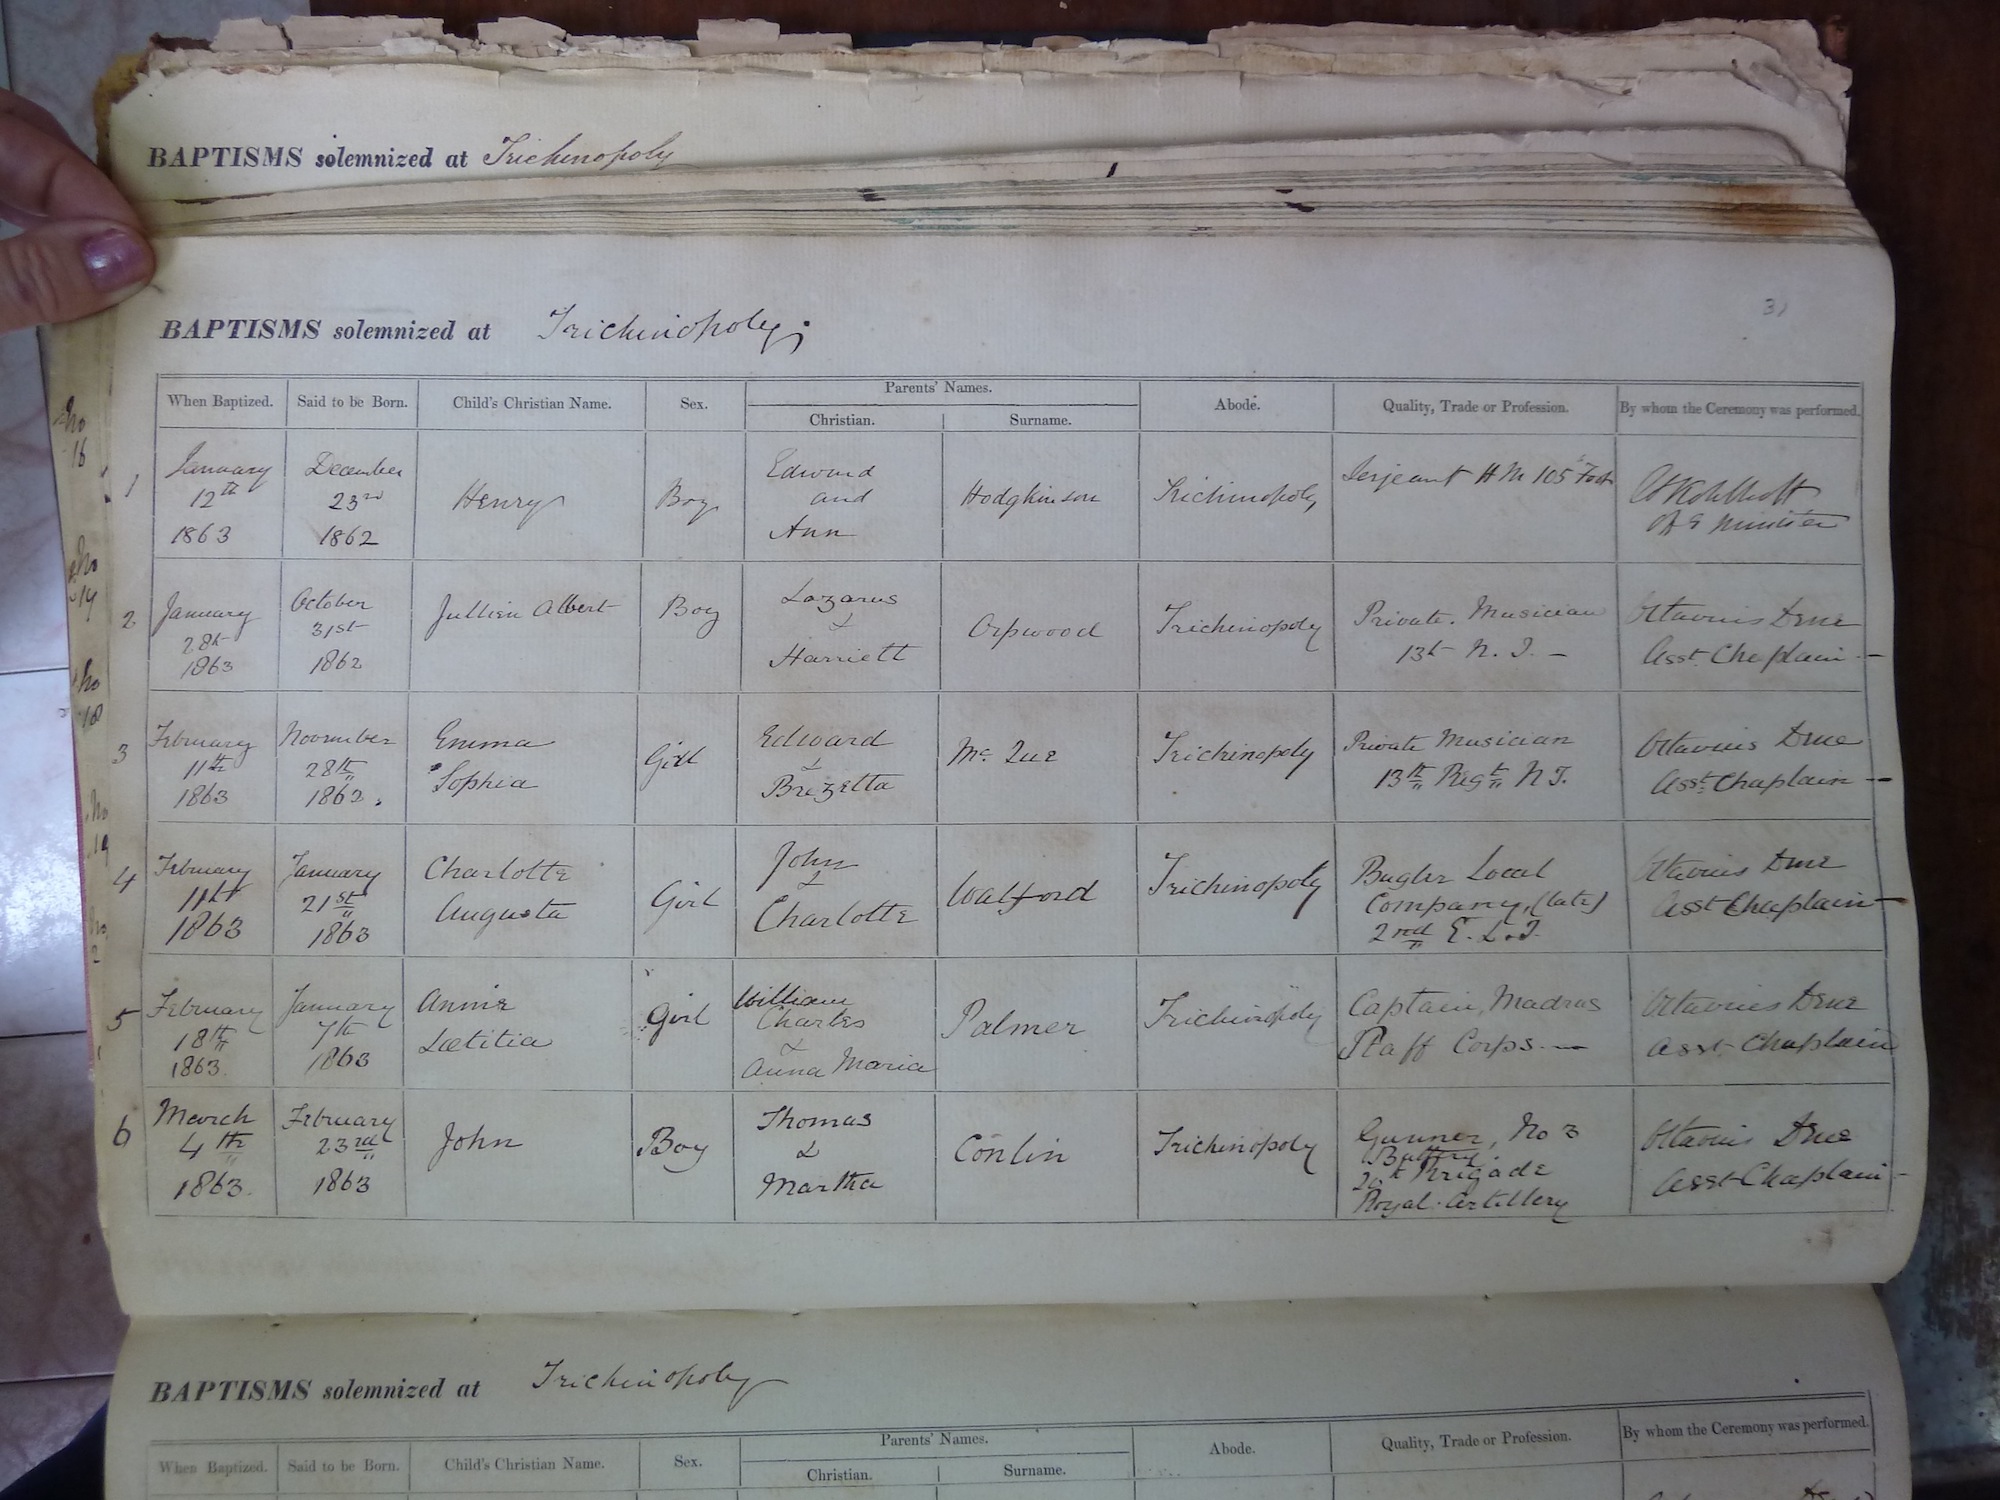 BAPTISMS solemnized at Trichinopoly
BAPTISMS solemnized at Trichinopoly;
31
When Baptized. Said to be Born. Child's Christian Name. Sex. Parents' Names. Abode. Quality, Trade or Profession. By whom the Ceremony was performed.
Christian. Surname.
No
16
No
No
18
No
19
1
January
12th
1863
December
23rd
1862
Henry
Boy
Edward
and
Ann
Hodgkinson
Trichinopoly
Serjeant H M 105 Foot
Minister
2
January
28th
1863
October
31st
1862
Jullien Albert
Boy
Lazarus
&
Harriett
Orpwood
Trichinopoly
Private. Musician
13th N. I. –
Octavius Dene
Asst. Chaplain –
3
February
11th
1863
November
28th
1862.
Emma
Sophia
Girl
Edward
&
Brezetta
Mc Lue
Trichinopoly
Private Musician
13th Regt N I.
Octavius Dene
Asst. Chaplain –
4
February
11th
1863
January
21st
1863
Charlotte
Augusta
Girl
John
&
Charlotte
Walford
Trichinopoly
Bugler Local
Company, (late)
2nd E. L. I.
Octavius Dene
Asst Chaplain –
5
February
18th
1863.
January
7th
1863
Annie
Lætitia
Girl
William
Charles
&
Anna Maria
Palmer
Trichinopoly
Captain, Madras
Staff Corps. –
Octavius Dene
Asst. Chaplain
6
March
4th
1863.
February
23rd
1863
John
Boy
Thomas
&
Martha
Conlin
Trichinopoly
Gunner, No 3
Battery
20th Brigade
Royal Artillery
Octavius Dene
Asst Chaplain –
BAPTISMS solemnized at Trichinopoly
When Baptized. Said to be Born. Child's Christian Name. Sex. Parents' Names. Abode. Quality, Trade or Profession. By whom the Ceremony was performed.
Christian. Surname.